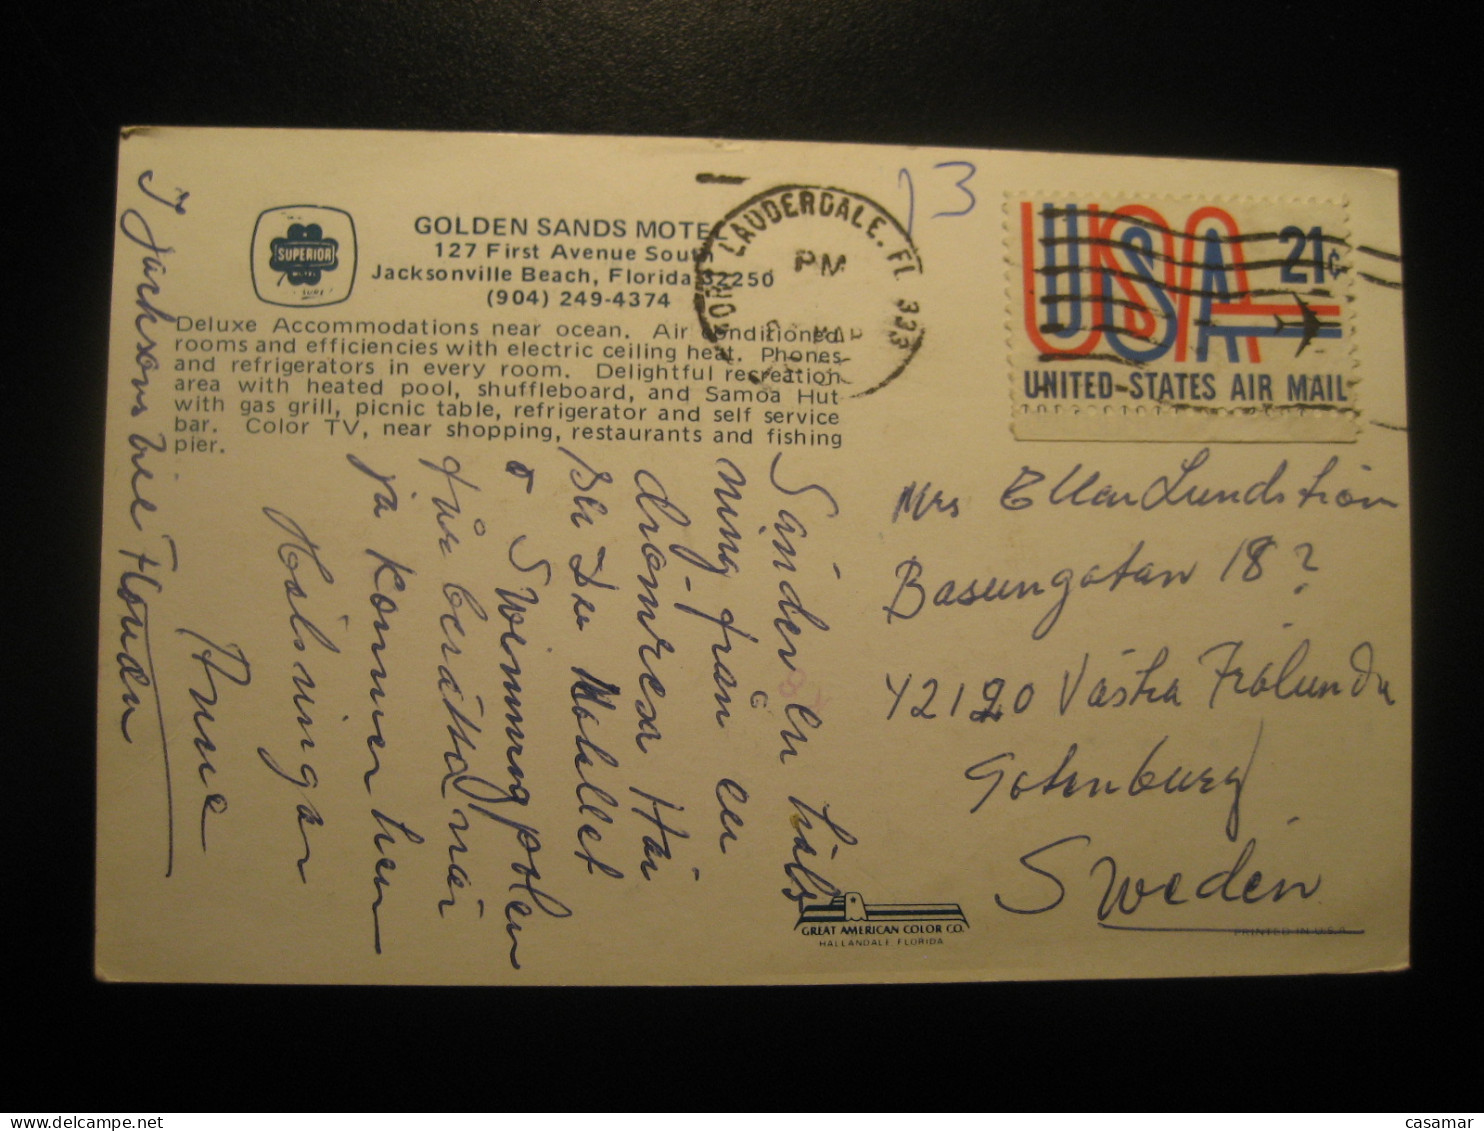 SUPERIOR
GOLDEN SANDS MOTEL
127 First Avenue South
Jacksonville Beach, Florida 32250
(904) 249-4374
Deluxe Accommodations near ocean. Air conditioned
rooms and efficiencies with electric ceiling heat. Phones
and refrigerators in every room. Delightful recreation
area with heated pool, shuffleboard, and Samoa Hut
with gas grill, picnic table, refrigerator and self service
bar. Color TV, near shopping, restaurants and fishing
pier.
FORT LAUDERDALE. FL 333
PM
13
USA 21¢
UNITED STATES AIR MAIL
Sänder en häls
ning från en
drömresa Här
ser Du
o Swimmingpolen
för berätta när
ja kommer hem
Hälsningar
Anna
Mrs Ellen Lundström
18?
42120 Västra Frölunda
Gotenburg
Sweden
GREAT AMERICAN COLOR CO.
HALLANDALE FLORIDA
PRINTED IN U.S.A.
casamar